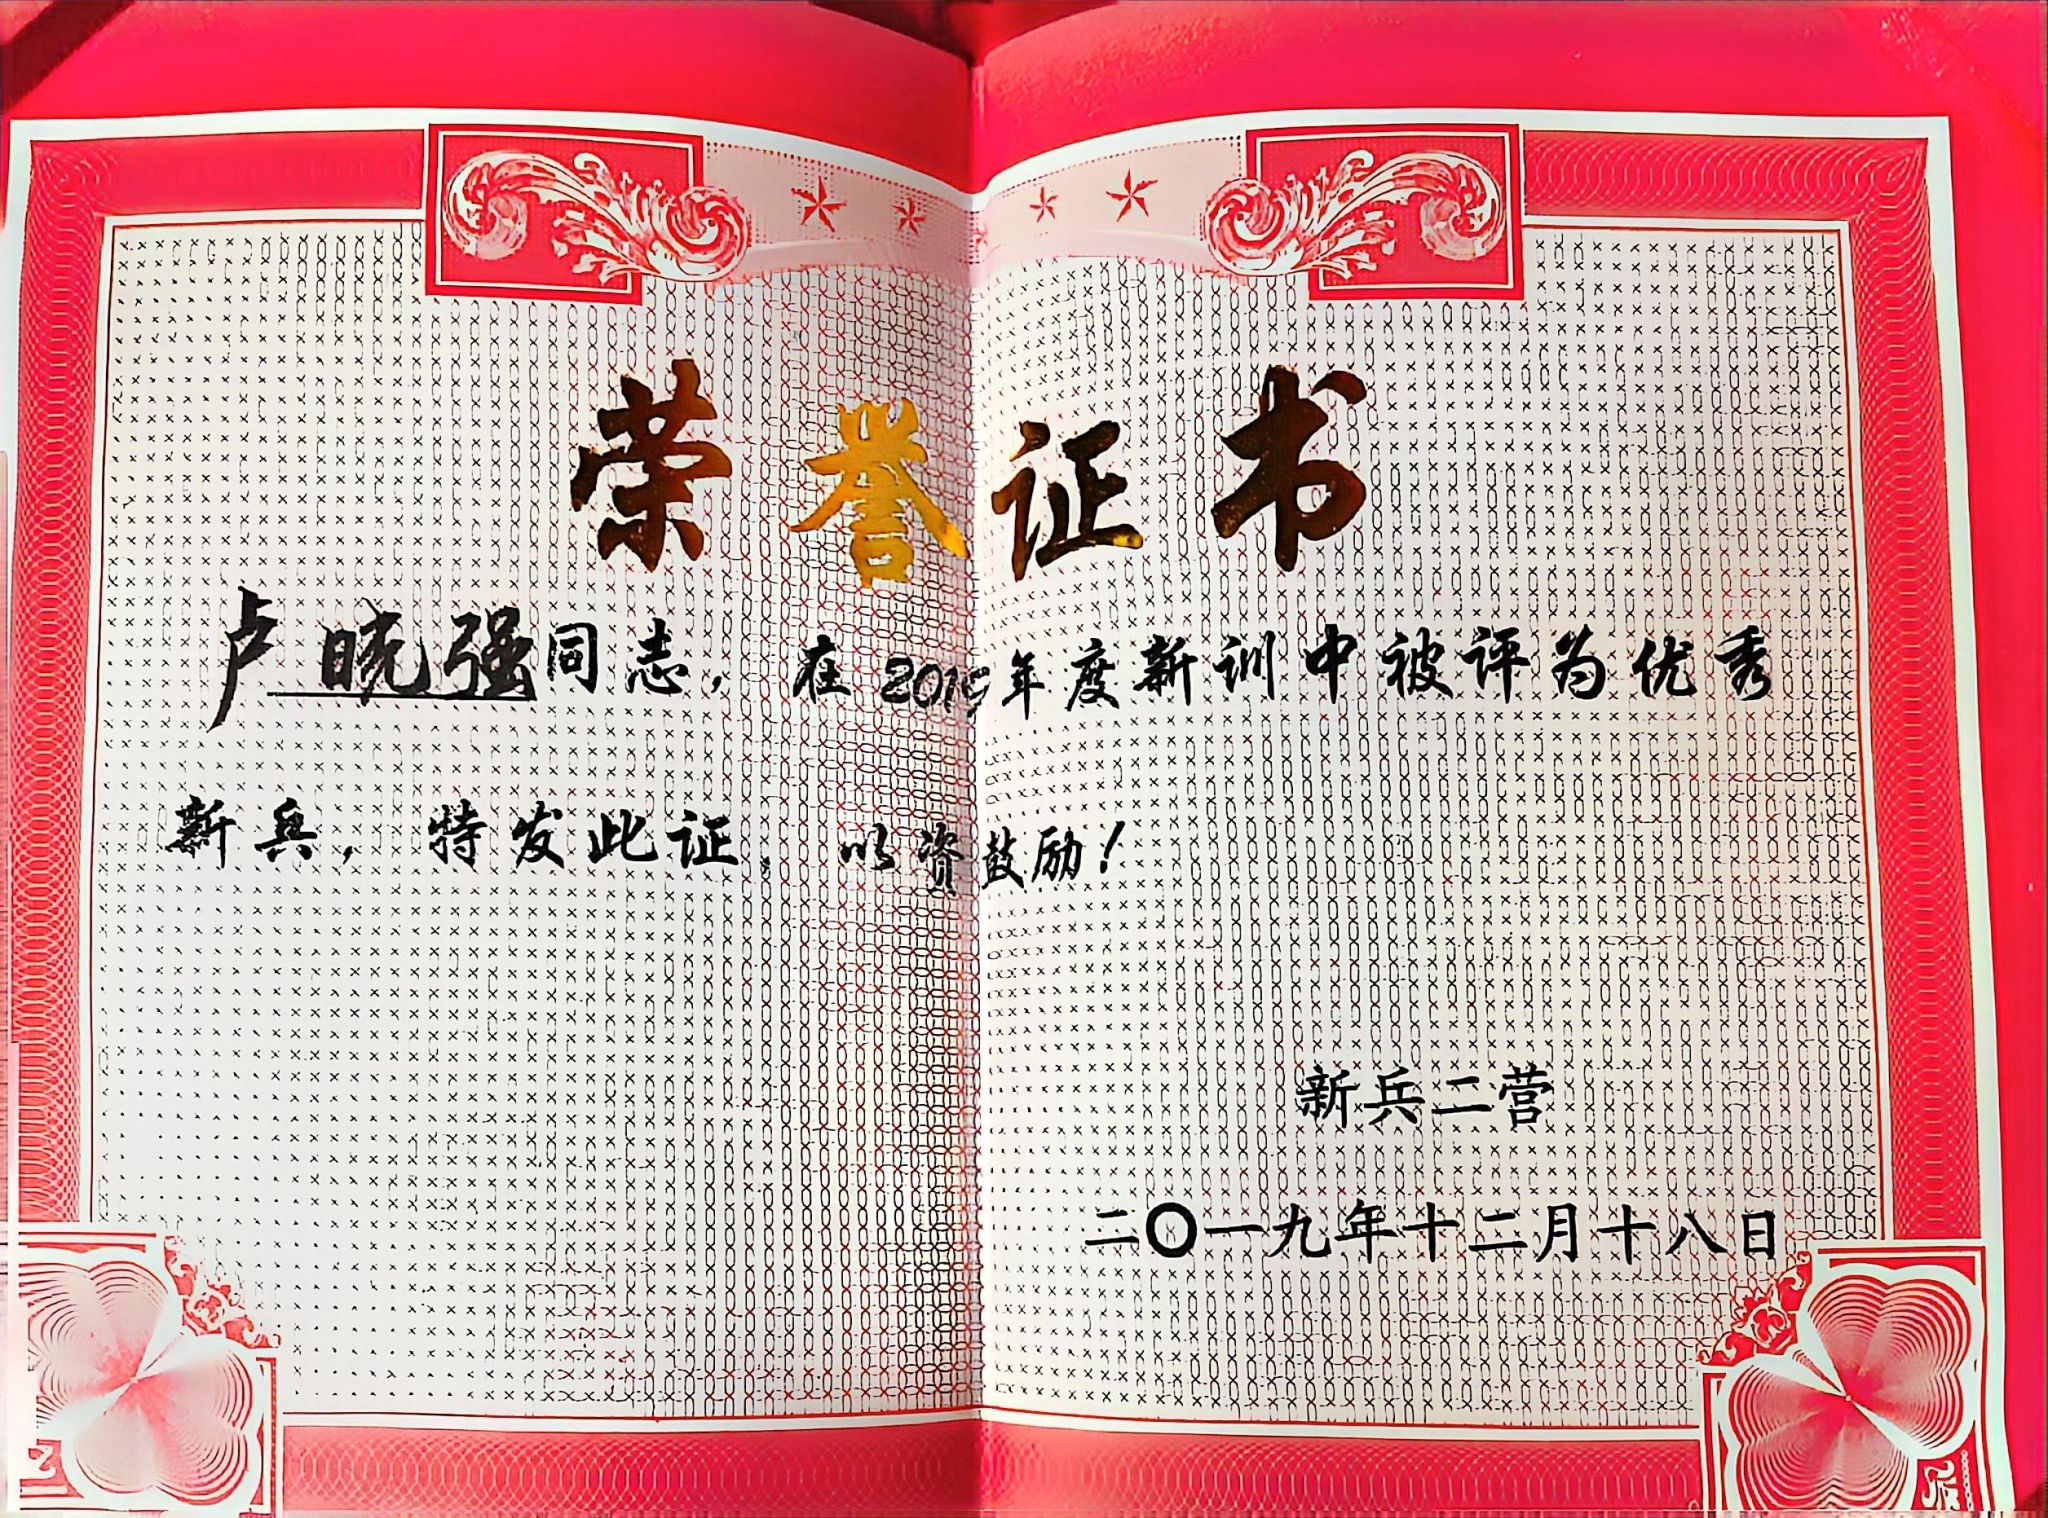 荣誉证书
卢晓强同志，在2019年度新训中被评为优秀
新兵，特发此证，以资鼓励！
新兵二营
二〇一九年十二月十八日